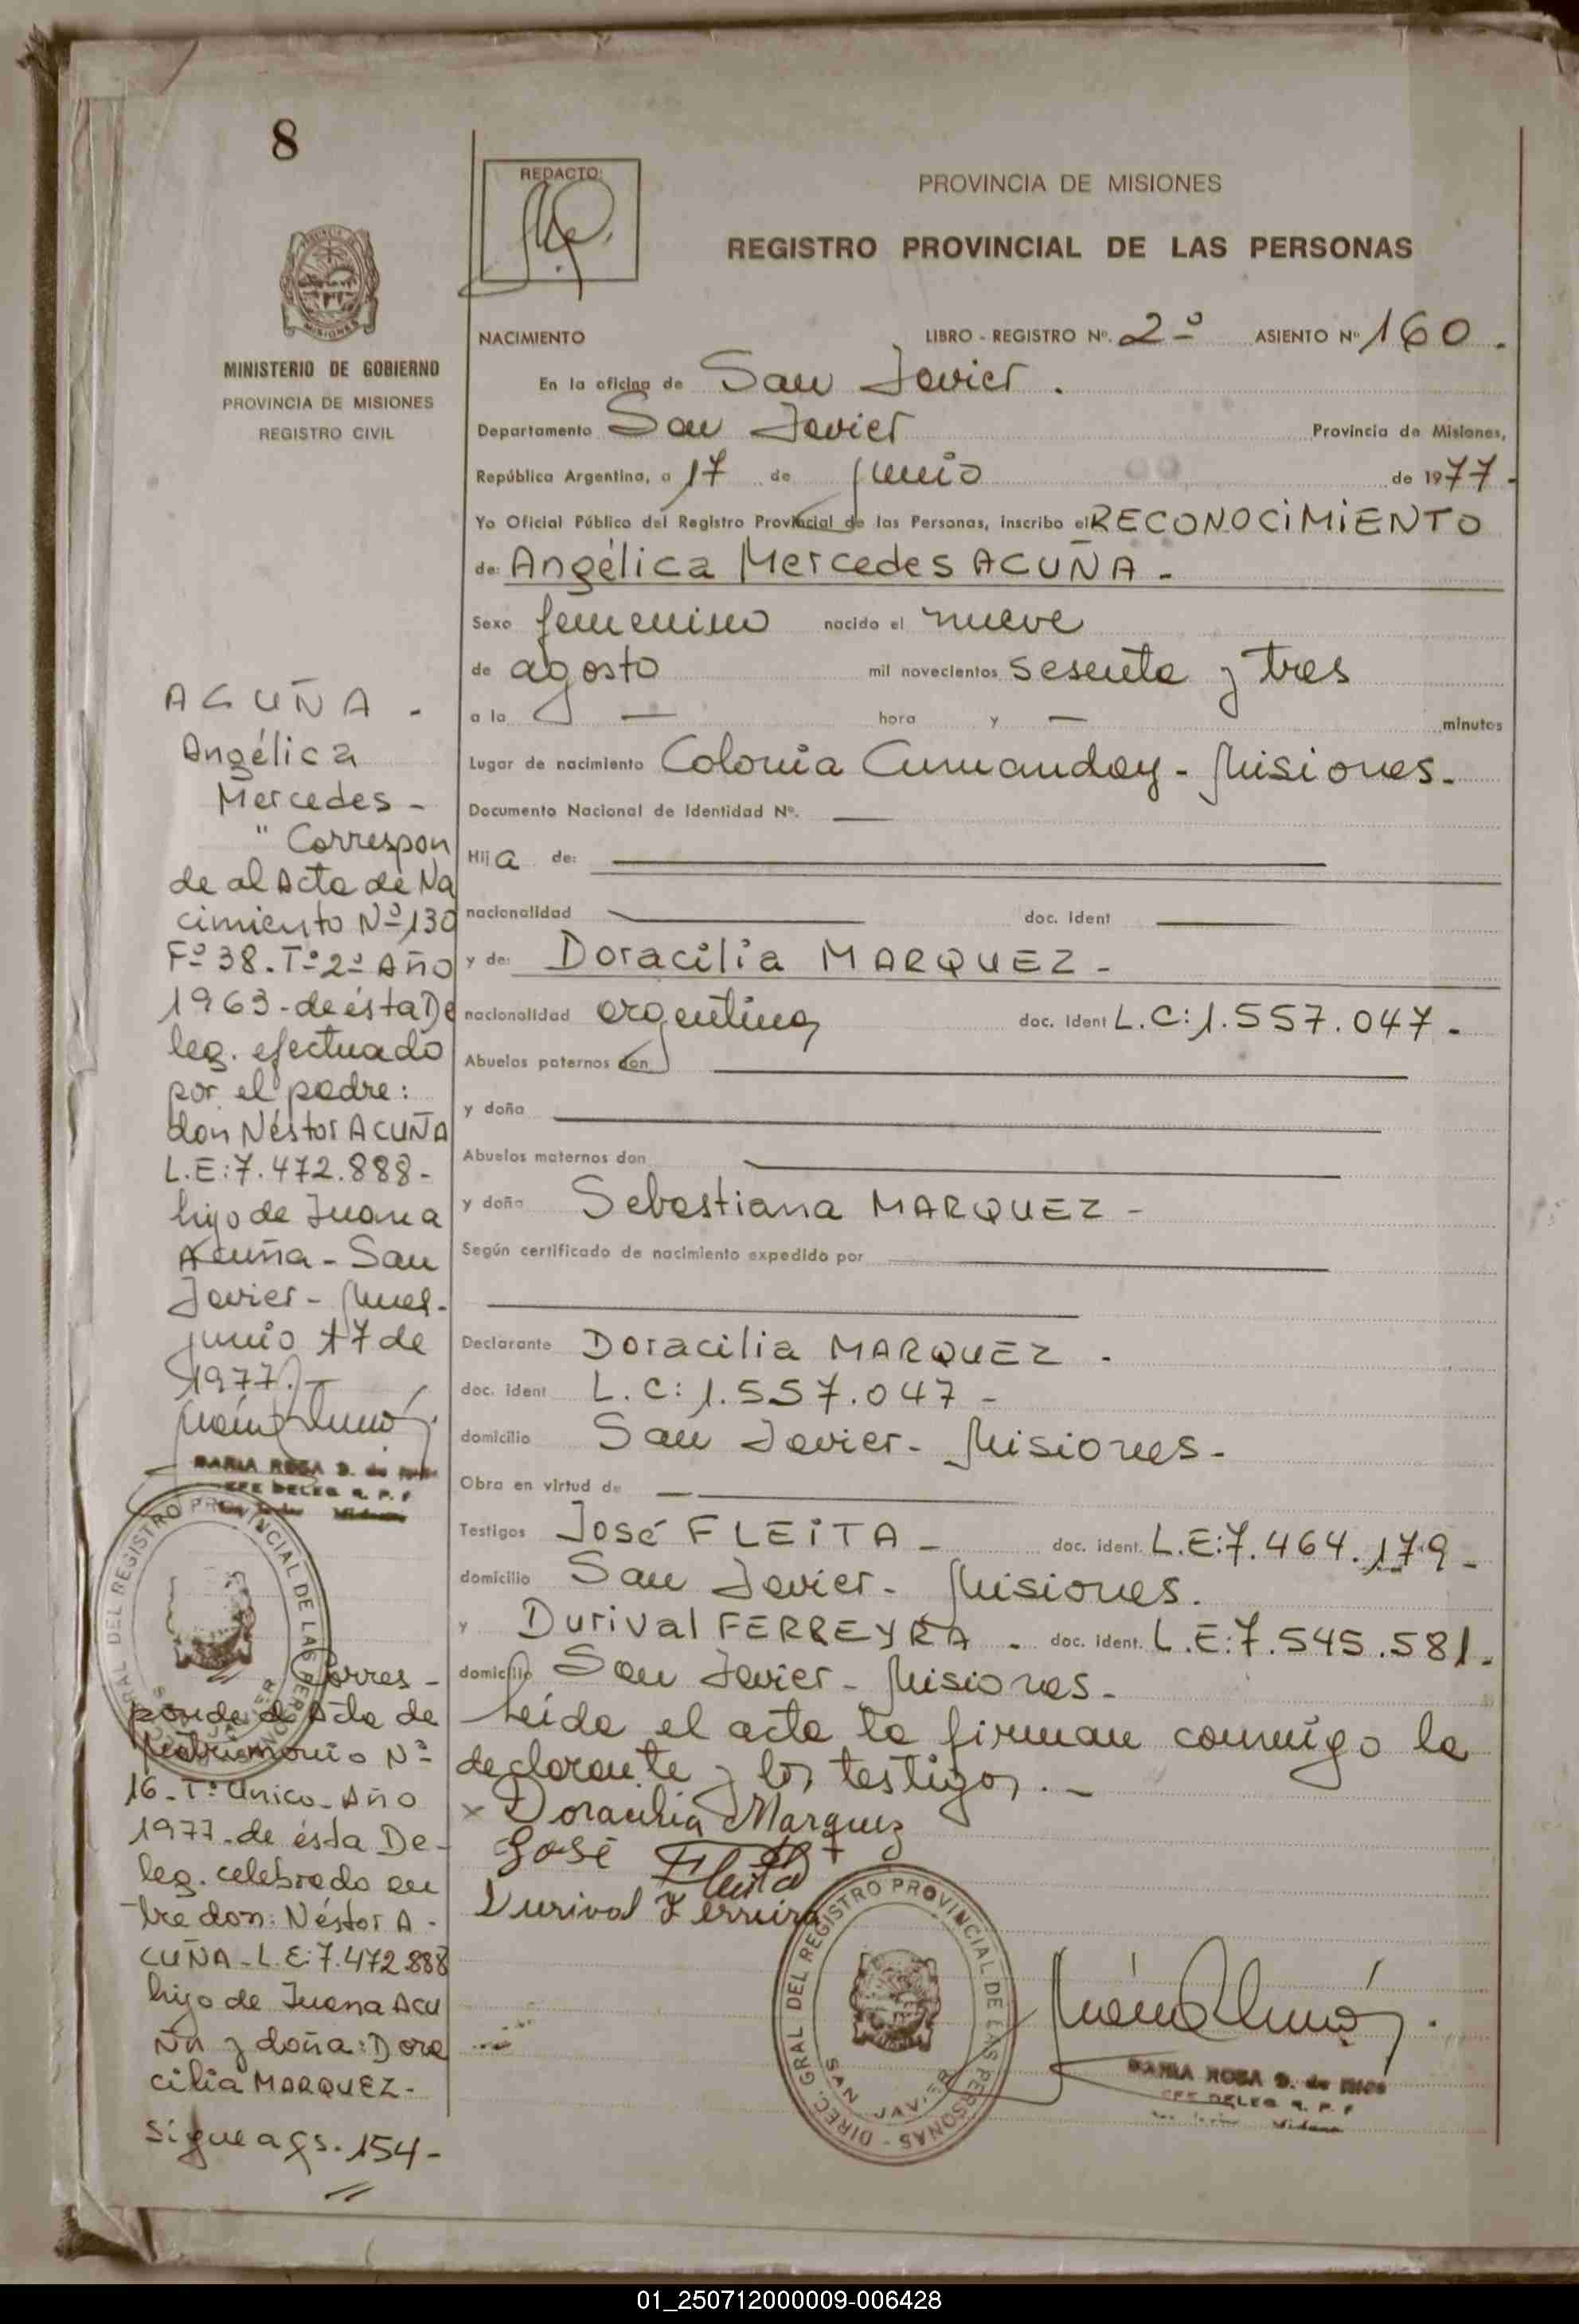 8
MINISTERIO DE GOBIERNO
PROVINCIA DE MISIONES
REGISTRO CIVIL
ACUÑA -
Angélica
Mercedes -
" Correspon
de al Acta de Na
cimiento Nº 130
Fº 38. Tº 2º Año
1963 - de ésta De
leg. efectuado
por el padre:
don Néstor ACUÑA
L.E: 7.472.888 -
hijo de Juana
Acuña - San
Javier - Mnes.
junio 17 de
1977. -
MARIA ROSA D. de RIOS
JEFE DELEG R. P. P
Corres -
ponde al Acta de
Matrimonio Nº
16 - Tº Unico - Año
1977 - de ésta De -
leg. celebrado en
tre don: Néstor A -
CUÑA - L.E: 7.472.888
hijo de Juana Acu
ña y doña: Dora
cilia MARQUEZ -
sigue a fs. 154 -
REDACTO:
PROVINCIA DE MISIONES
REGISTRO PROVINCIAL DE LAS PERSONAS
NACIMIENTO LIBRO - REGISTRO Nº. 2º ASIENTO Nº 160.
En la oficina de San Javier.
Departamento San Javier Provincia de Misiones,
República Argentina, a 17 de junio de 1977 -
Yo Oficial Público del Registro Provincial de las Personas, inscribo el RECONOCIMIENTO
de: Angélica Mercedes ACUÑA -
Sexo femenino nacido el nueve
de agosto mil novecientos sesenta y tres
a la — hora y — minutos
Lugar de nacimiento Colonia Cumanday - Misiones -
Documento Nacional de Identidad Nº. —
Hija de:
nacionalidad doc. ident
y de: Doracilia MARQUEZ -
nacionalidad argentina doc. ident L.C: 1.557.047 -
Abuelos paternos don
y doña
Abuelos maternos don
y doña Sebastiana MARQUEZ -
Según certificado de nacimiento expedido por
Declarante Doracilia MARQUEZ .
doc. ident L.C: 1.557.047 -
domicilio San Javier - Misiones -
Obra en virtud de —
Testigos José FLEITA - doc. ident. L.E: 7.464.179 -
domicilio San Javier - Misiones.
y Durival FERREYRA - doc. ident. L.E: 7.545.581 -
domicilio San Javier - Misiones -
Leída el acta la firman conmigo la
declarante y los testigos. -
x Doracilia Marquez
José Fleita
Durival Ferreira
DIREC. GRAL DEL REGISTRO PROVINCIAL DE LAS PERSONAS - SAN JAVIER
MARIA ROSA D. de RIOS
JEFE DELEG R. P. P
01_250712000009-006428